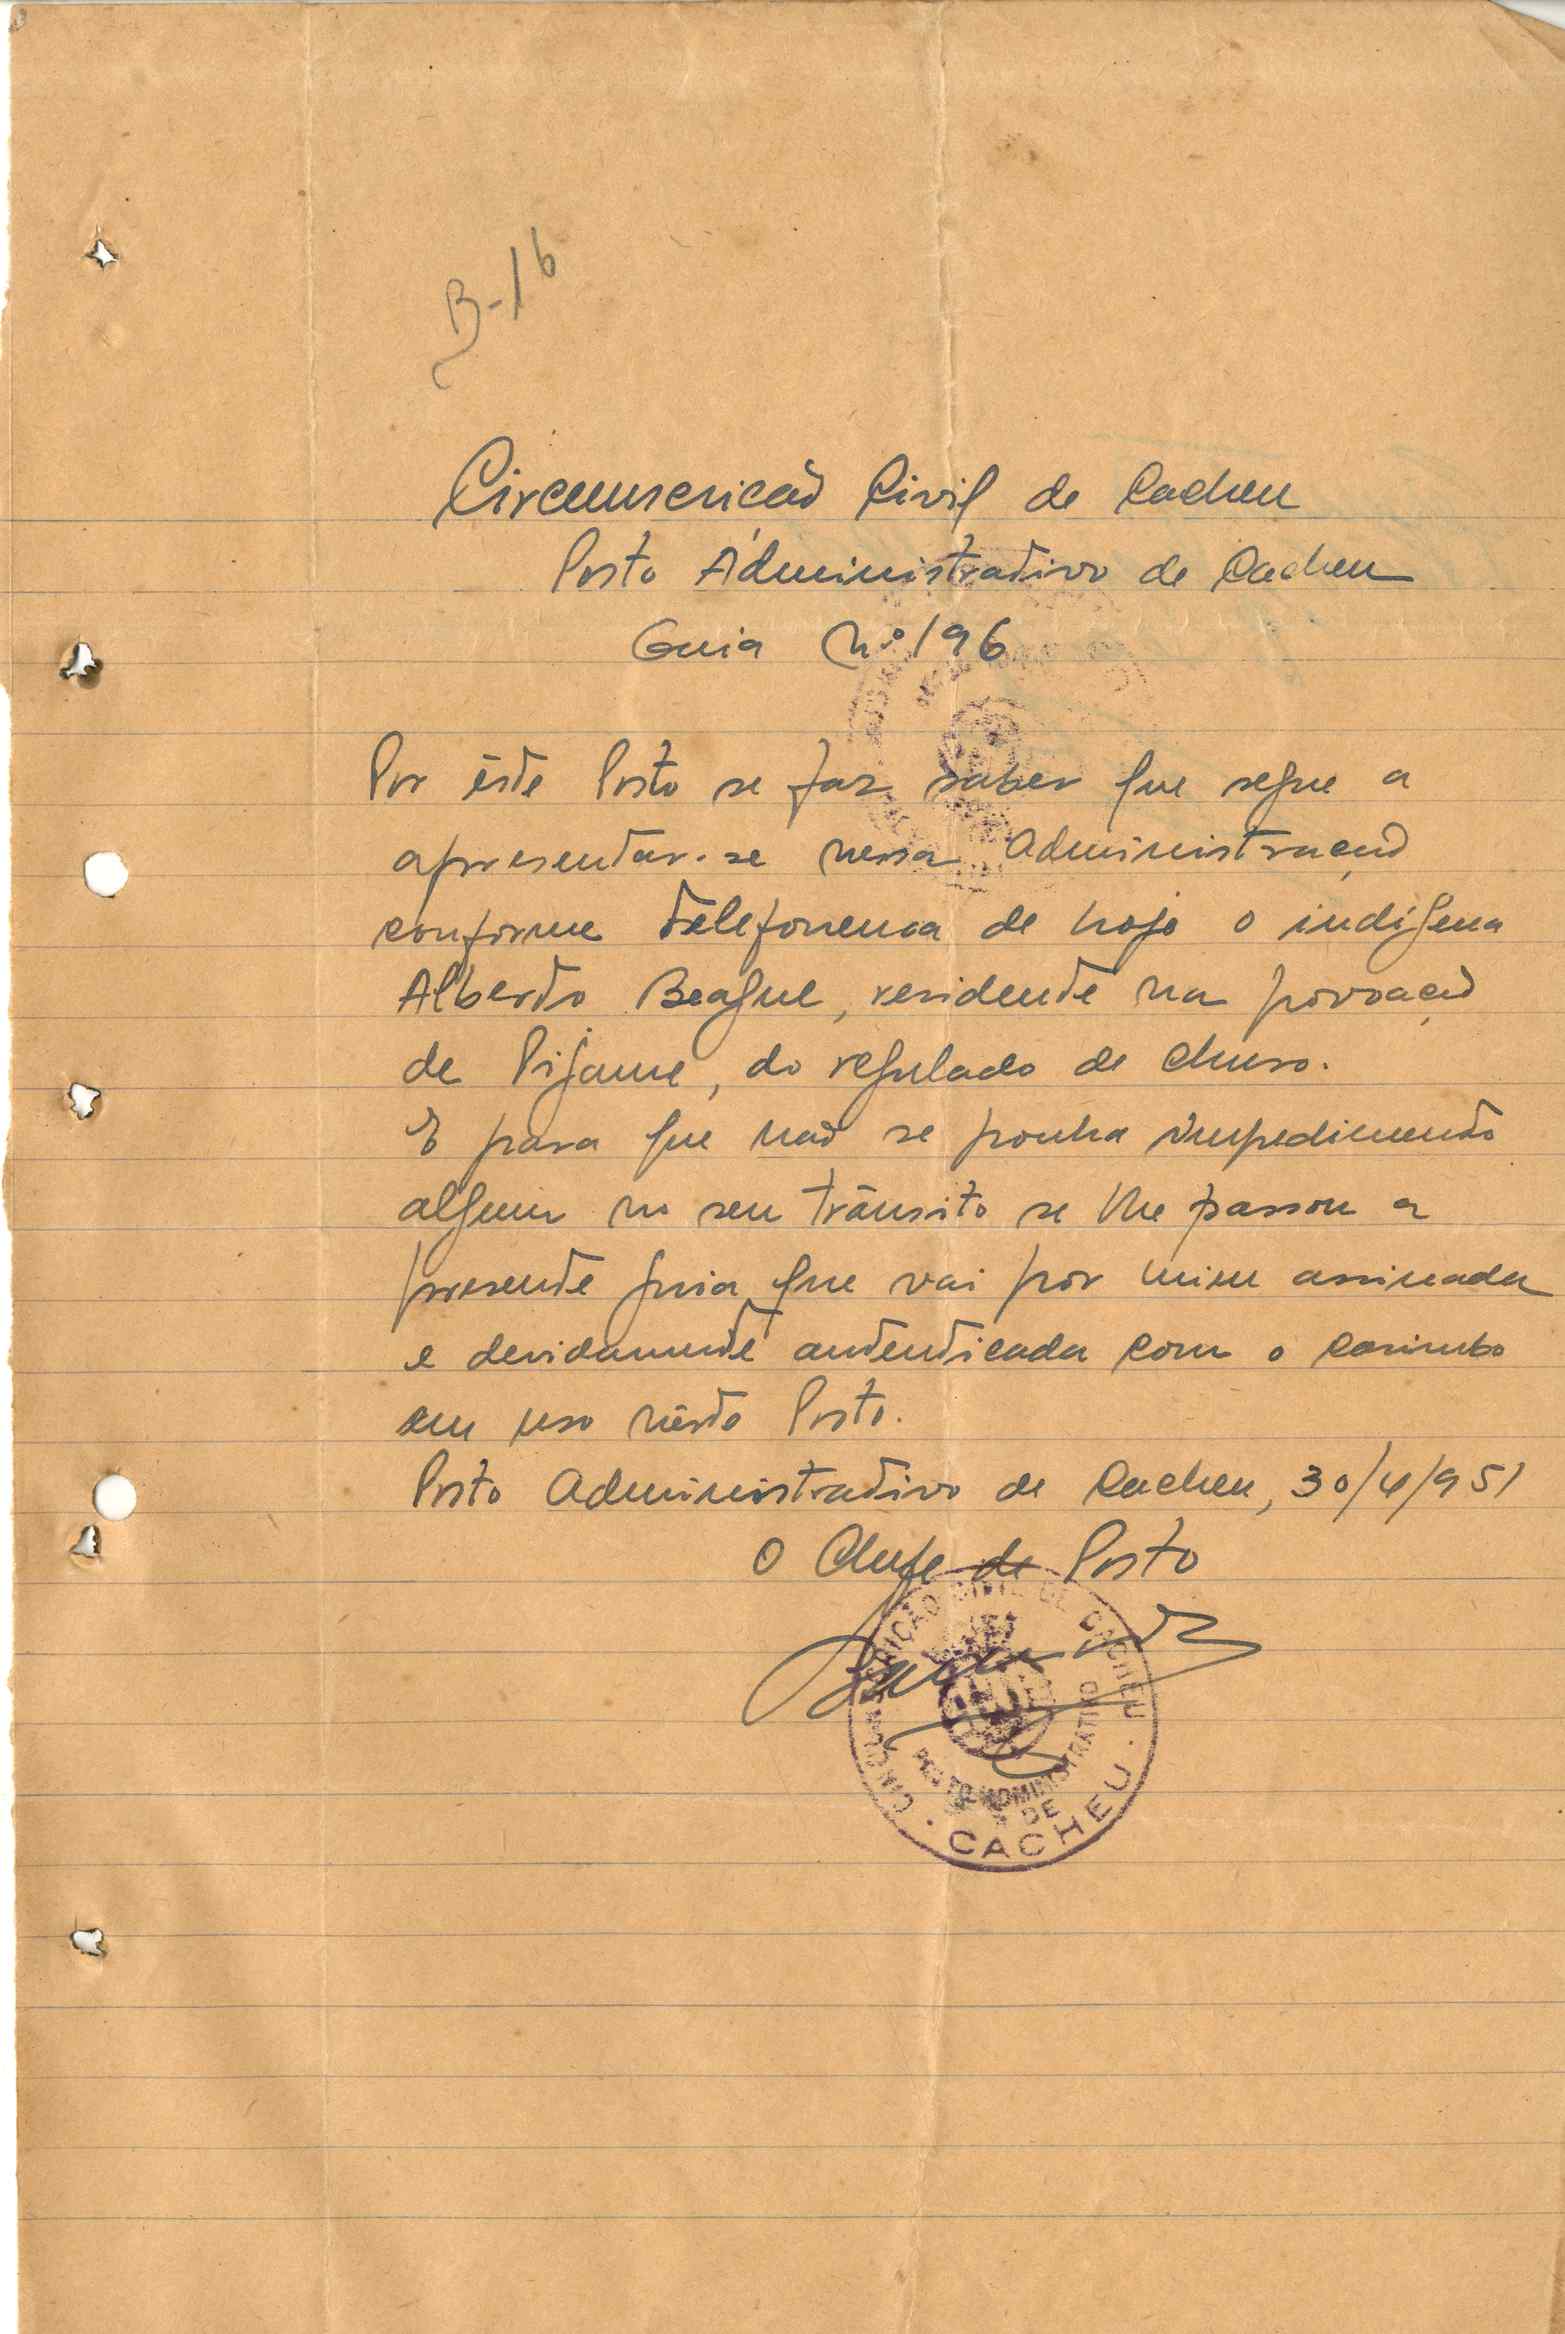 B-16
Circunscrição Civil de Cacheu
Posto Administrativo de Cacheu
Guia N.º 196
Por êste Posto se faz saber que segue a
apresentar-se nessa Administração
conforme telefonema de hoje o indígena
Alberto Beague, residente na povoação
de Pijame, do regulado de Churo.
E para que não se ponha impedimento
algum no seu trânsito se lhe passou a
presente guia que vai por mim assinada
e devidamente autenticada com o carimbo
em uso nêste Posto.
Posto Administrativo de Cacheu, 30/4/951
O Chefe de Posto
CIRCUNSCRIÇÃO CIVIL DE CACHEU
POSTO ADMINISTRATIVO
DE
CACHEU